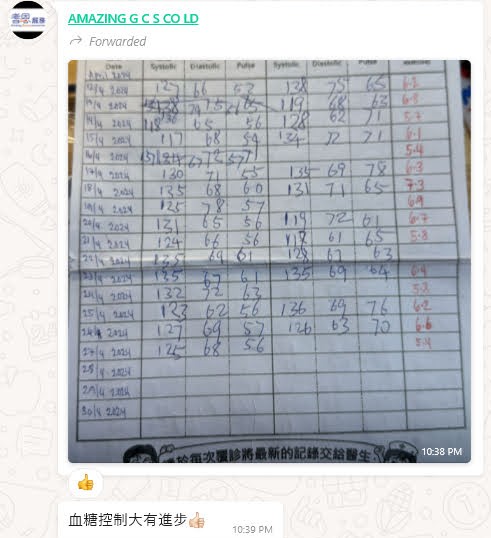 AMAZING G C S CO LD
Forwarded
Date Systolic Diastolic Pulse Systolic Diastolic Pulse
April 2024
13/4 2024 127 66 52 138 75 65 6.2
119 68 63
14/4 2024 65 56 128 62 71 5.7
15/4 2024 117 68 54 72 71 6.1
16/4 2024 5.4
17/4 2024 130 71 55 135 69 78 6.3
18/4 2024 135 68 60 131 71 65 7.3
19/4 2024 125 78 57 6.9
20/4 2024 131 65 56 119 72 61 6.7
21/4 2024 124 66 56 118 61 65 5.8
22/4 2024 125 69 61 128 67 63
23/4 2024 125 67 61 135 69 64 6.9
24/4 2024 132 72 63 5.8
25/4 2024 123 62 56 136 69 76 6.2
2024 127 69 57 126 63 70 6.6
27/4 2024 125 68 56 5.4
28/4 2024
29/4 2024
30/4 2024
於每次覆診將最新的記錄交給醫生
10:38 PM
血糖控制大有進步
10:39 PM